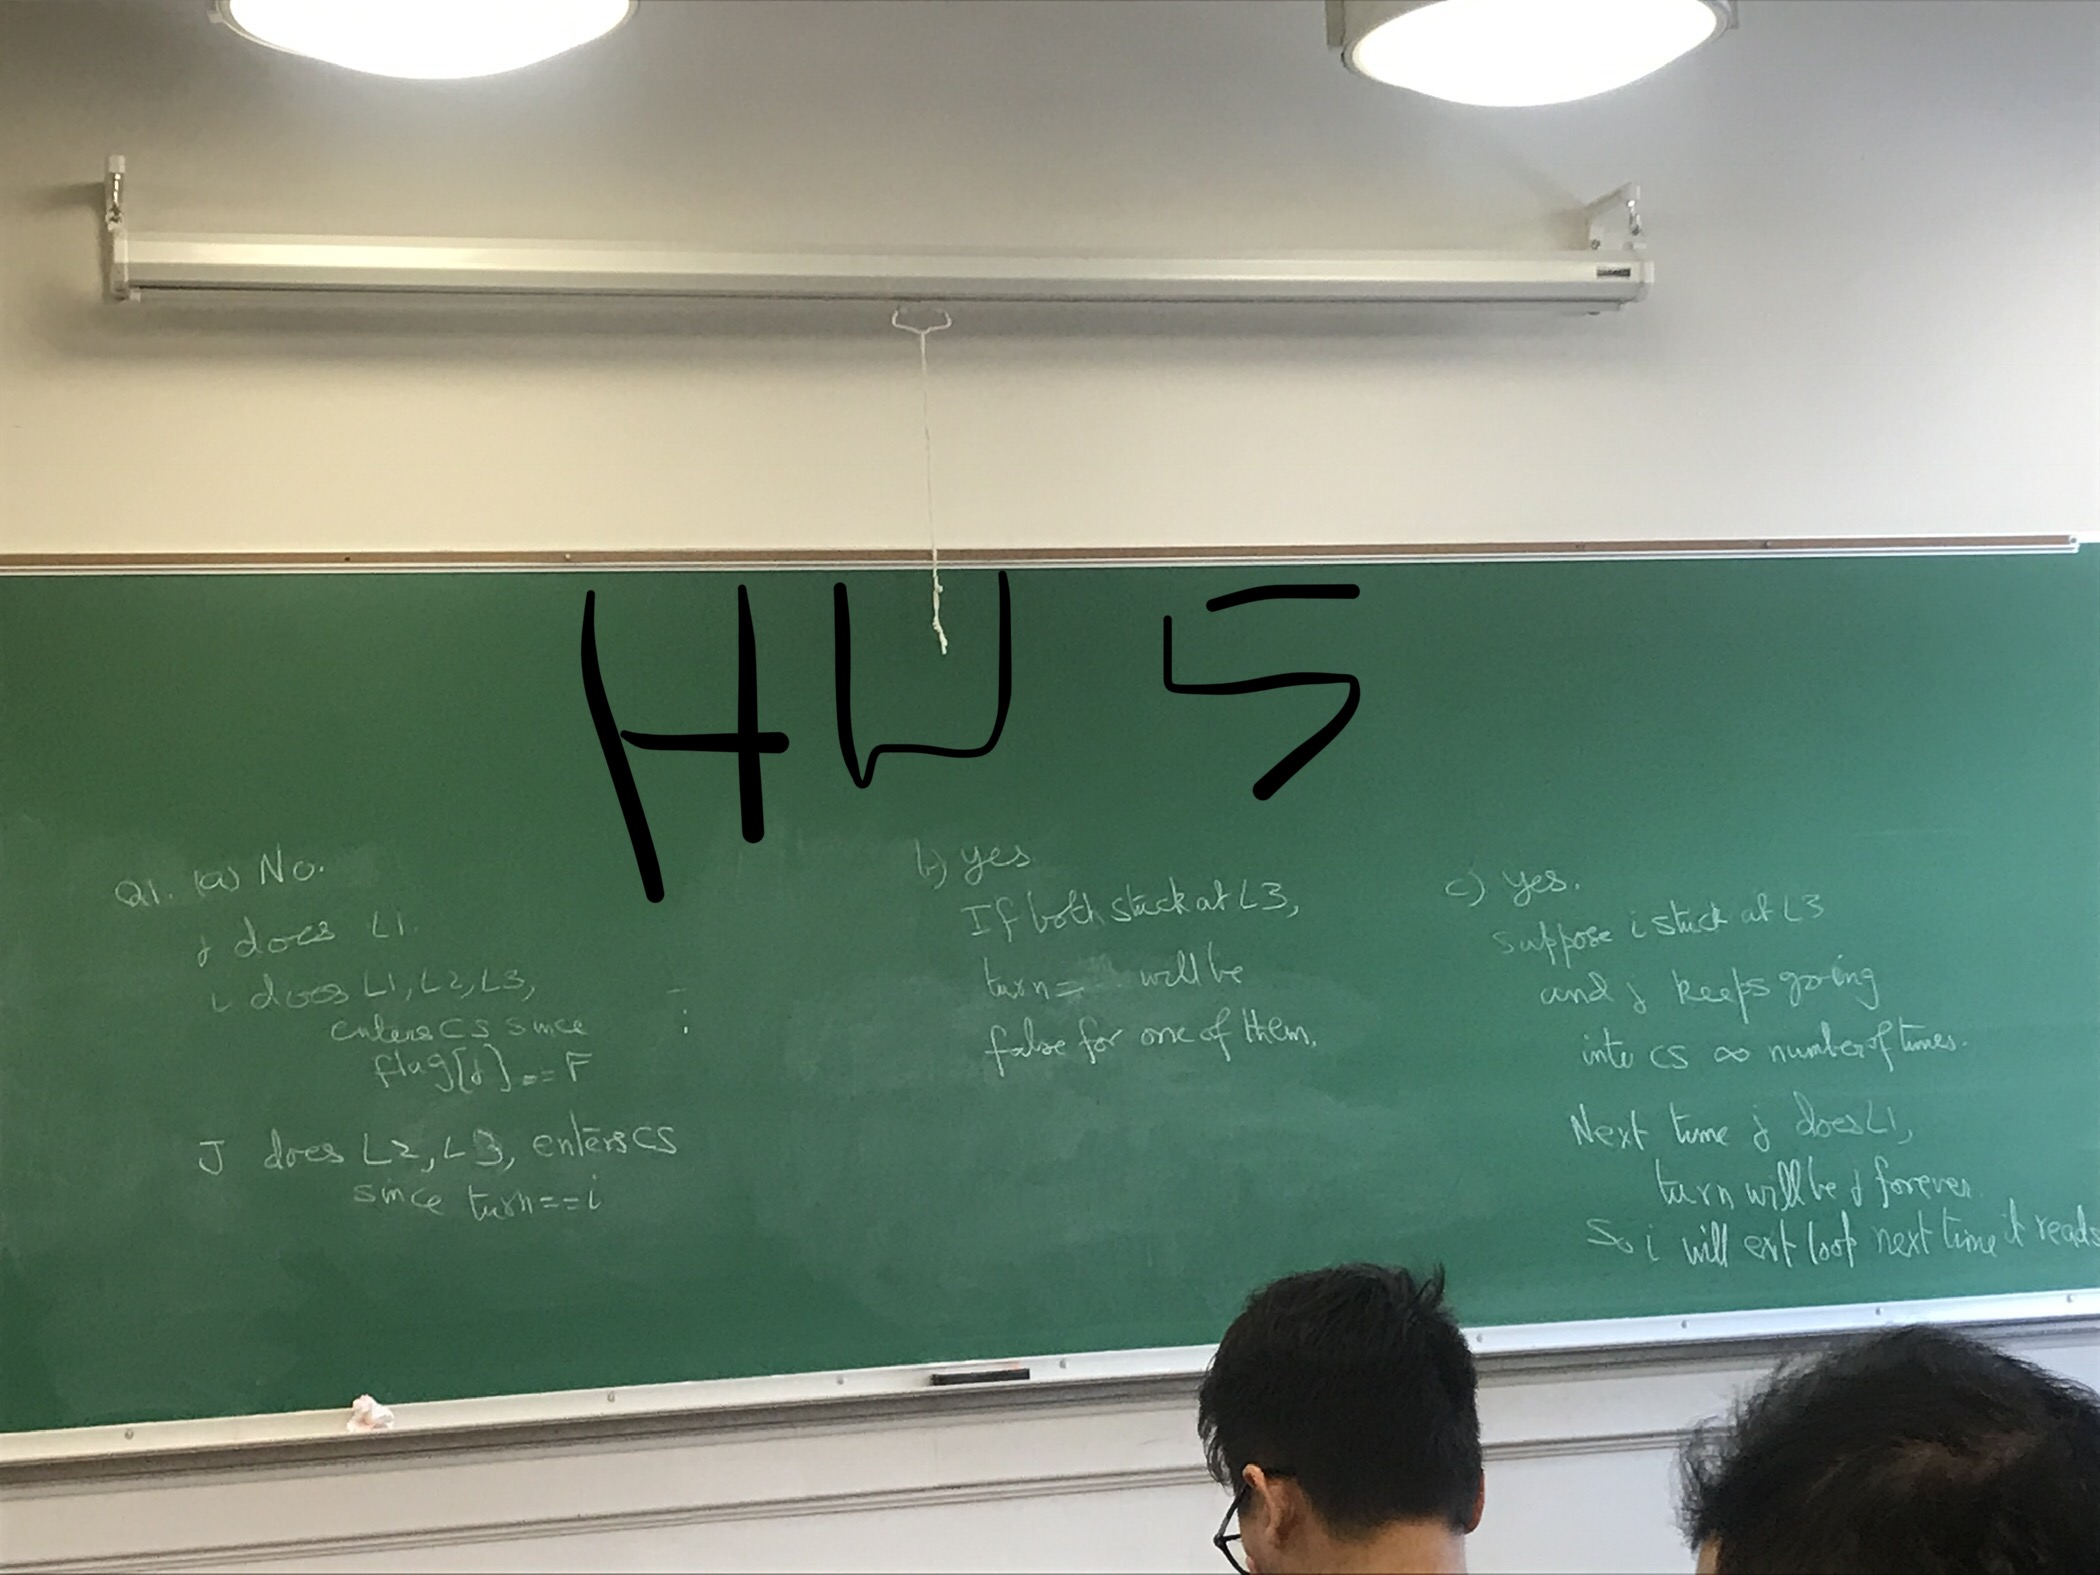 HW 5
Q1. (a) No.
j does L1.
i does L1, L2, L3,
enters CS since
flag[j] == F
J does L2, L3, enters CS
since turn==i
b) yes
If both stuck at L3,
turn= will be
false for one of them.
c) yes.
suppose i stuck at L3
and j keeps going
into CS ∞ number of times.
Next time j does L1,
turn will be j forever.
So i will exit loop next time it reads